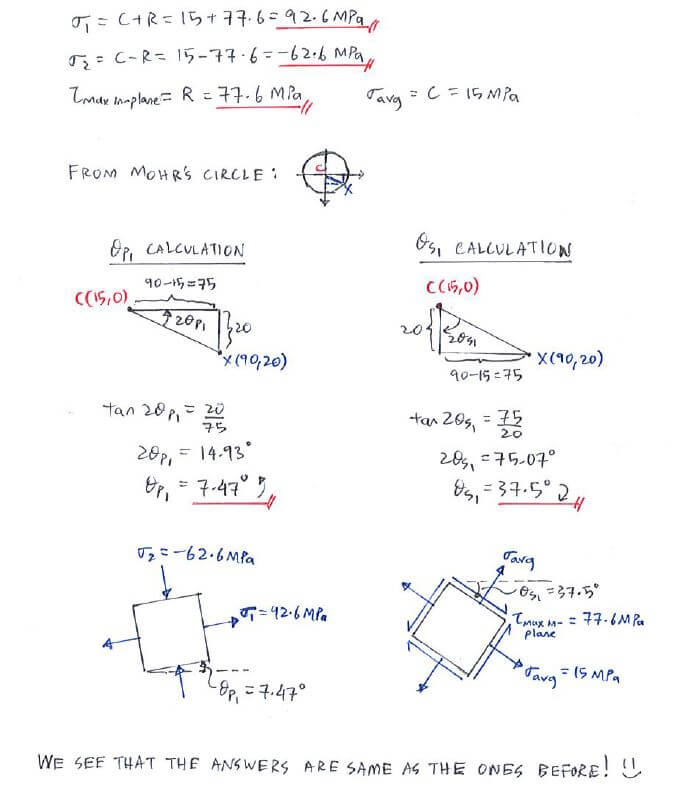 σ₁ = C+R = 15+77.6 = 92.6 MPa
σ₂ = C-R = 15-77.6 = -62.6 MPa
τmax in-plane = R = 77.6 MPa
σavg = C = 15 MPa
FROM MOHR'S CIRCLE:
C
X
θP₁ CALCULATION
90-15=75
C(15,0)
2θP₁
20
X(90,20)
tan 2θP₁ = 20/75
2θP₁ = 14.93°
θP₁ = 7.47° ↺
θS₁ CALCULATION
C(15,0)
20
2θS₁
X(90,20)
90-15=75
tan 2θS₁ = 75/20
2θS₁ = 75.07°
θS₁ = 37.5° ↻
σ₂ = -62.6 MPa
σ₁ = 92.6 MPa
θP₁ = 7.47°
σavg
θS₁ = 37.5°
τmax in-plane = 77.6 MPa
σavg = 15 MPa
WE SEE THAT THE ANSWERS ARE SAME AS THE ONES BEFORE! :)